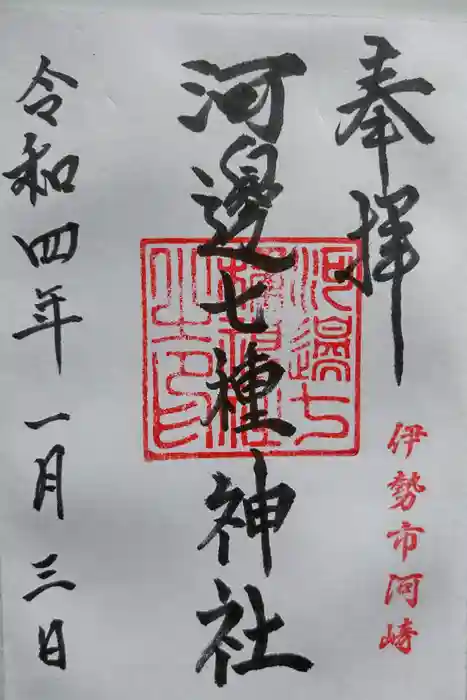 奉拝
伊勢市河崎
河邊七種神社
河邊七
種神社
之印
令和四年一月三日